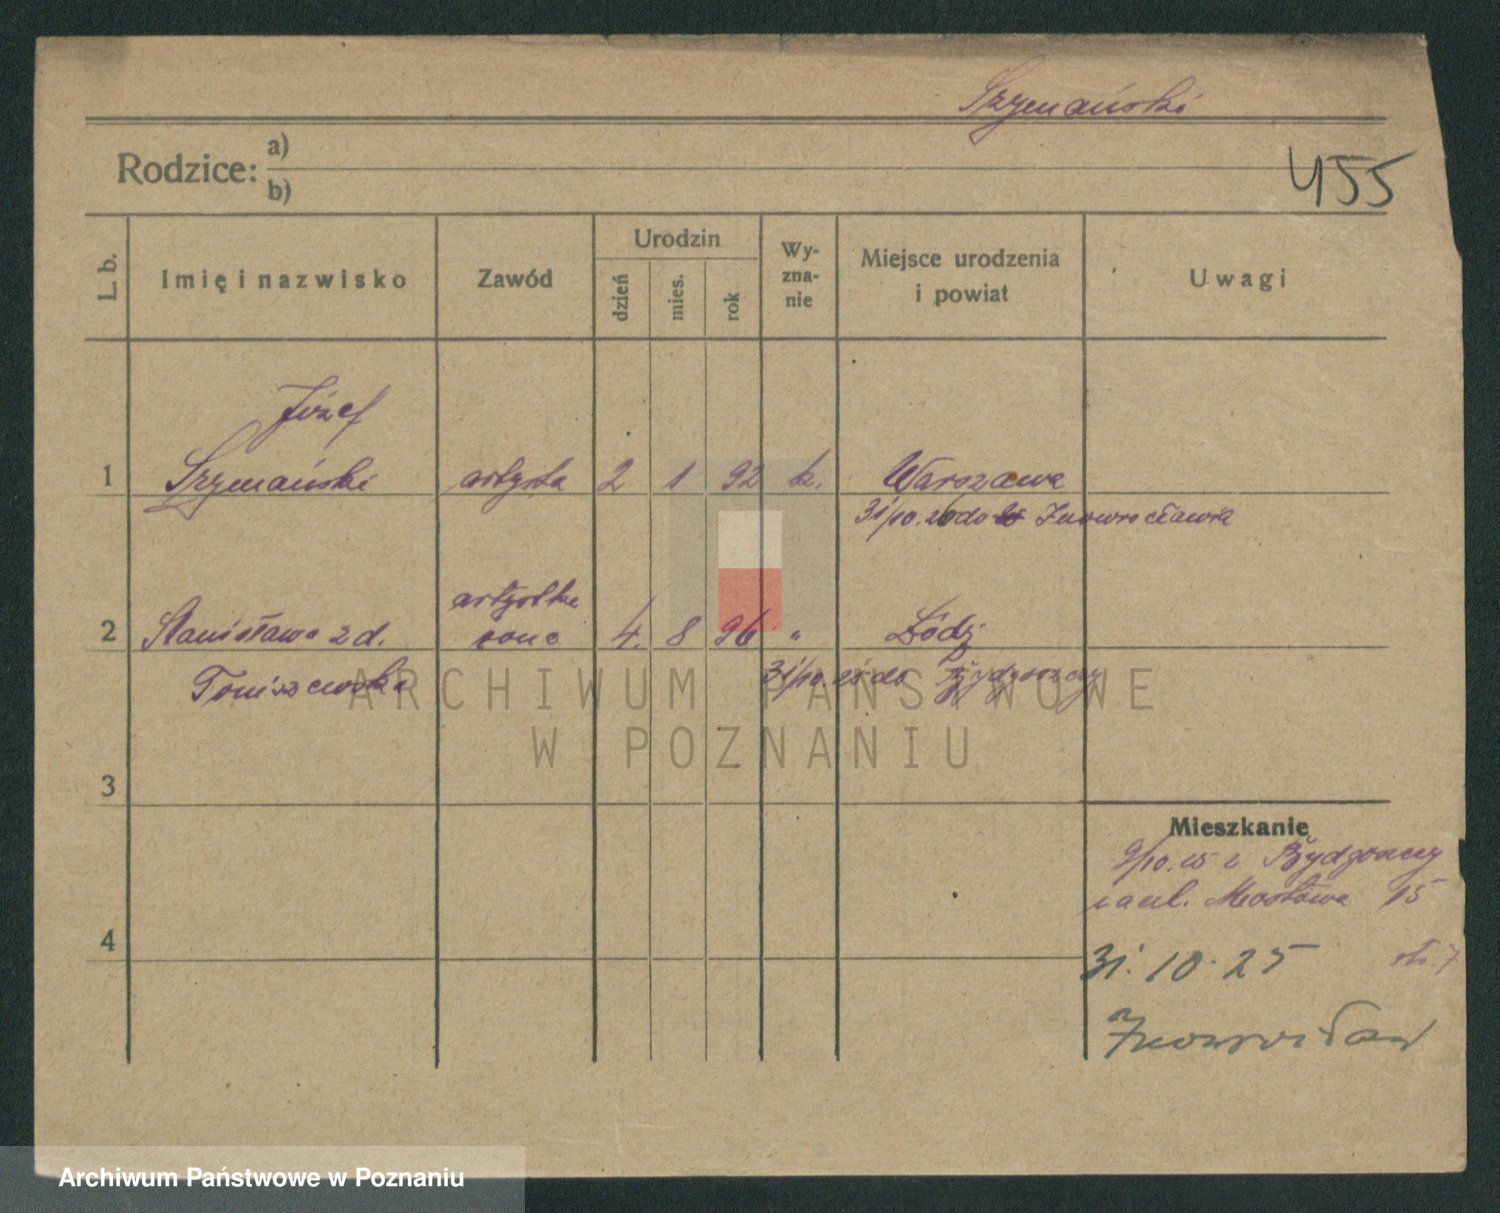 Szymański
Rodzice: a)
b)
455
L. b.
Imię i nazwisko
Zawód
Urodzin
dzień
mies.
rok
Wy-
zna-
nie
Miejsce urodzenia
i powiat
Uwagi
Józef
1 Szymański artysta 2 1 92 k. Warszawa
31/10.26 do Inowrocławia
artystka
2 Stanisława 2 d. żona 4. 8 96 " Łódź
Toniszewska 31/10.25 do Bydgoszczy
3
4
Mieszkanie
9/10.25 z Bydgoszczy
na ul. Mostowa 15
31.10.25
Inowrocław
ARCHIWUM PAŃSTWOWE
W POZNANIU
Archiwum Państwowe w Poznaniu